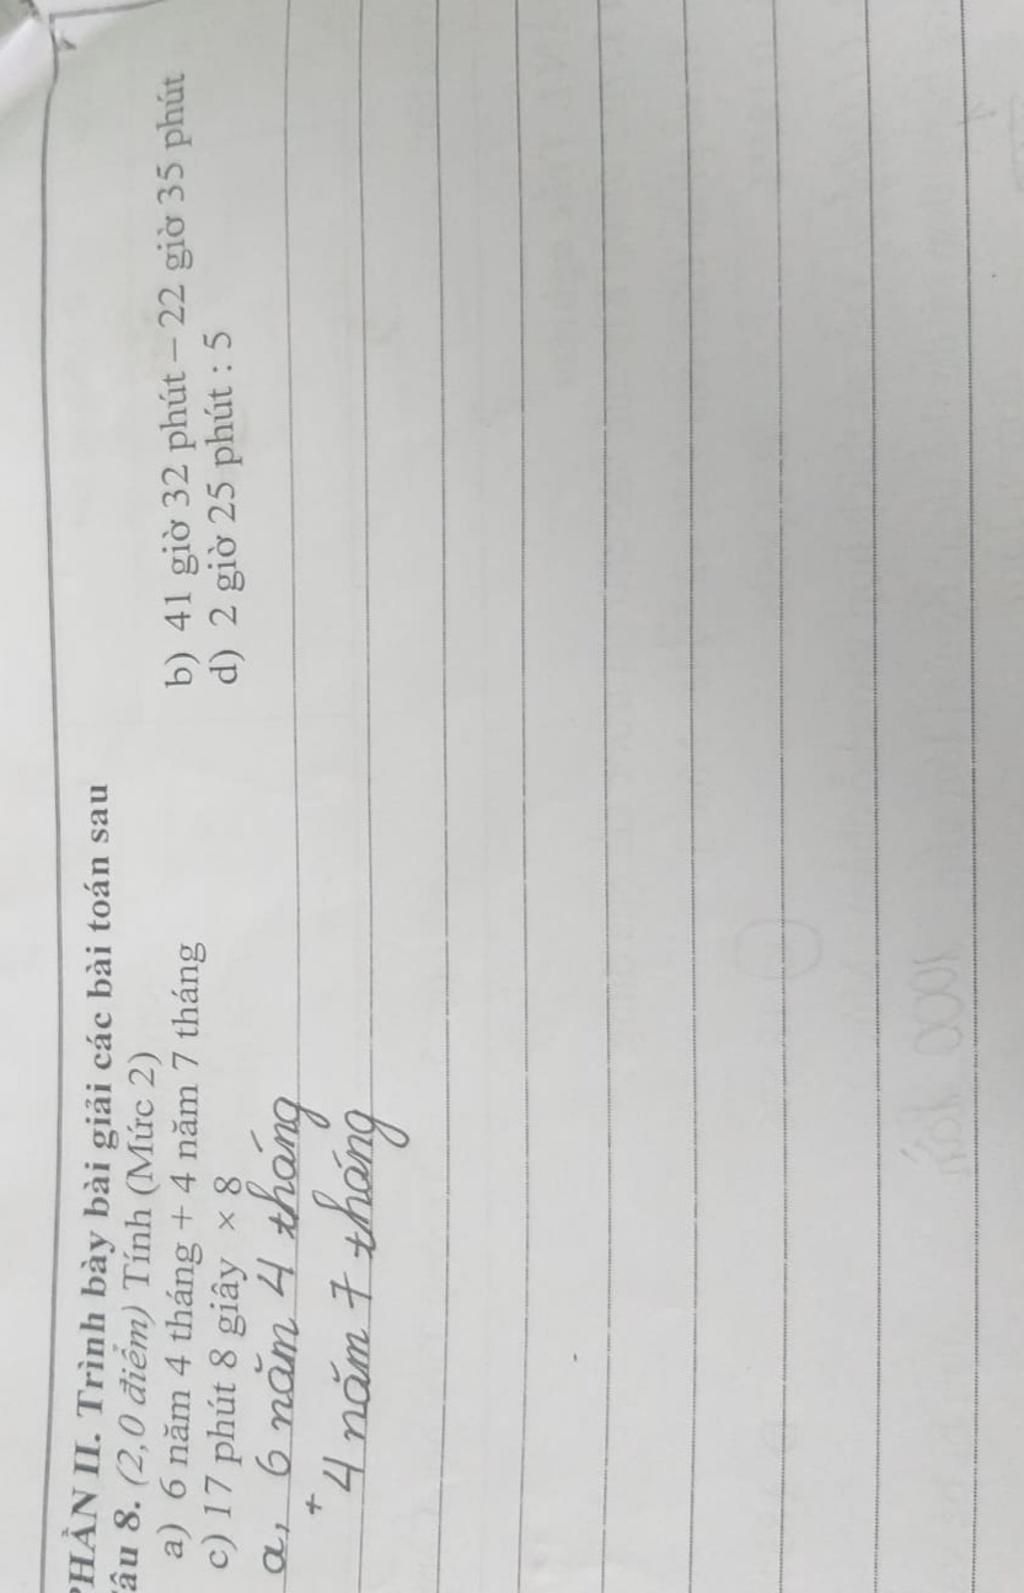 PHẦN II. Trình bày bài giải các bài toán sau
Câu 8. (2,0 điểm) Tính (Mức 2)
a) 6 năm 4 tháng + 4 năm 7 tháng b) 41 giờ 32 phút – 22 giờ 35 phút
c) 17 phút 8 giây × 8 d) 2 giờ 25 phút : 5
a, 6 năm 4 tháng
+
4 năm 7 tháng